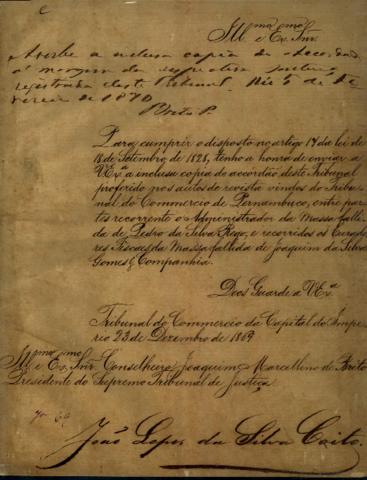 Ill.mo e Ex.mo Snr.
Averbe a inclusa copia do Accordão
á margem da respectiva sentença
registrada deste Tribunal. Rio 5 de
de 1870
Brito P.
Para cumprir o disposto no artigo 19 da lei de
18 de Setembro de 1828, tenho a honra de enviar a
V Ex.ª a inclusa copia do accordão deste Tribunal
proferido nos autos de revista vindos do Tribu-
nal do Commercio de Pernambuco, entre par-
tes recorrente o Administrador da Massa falli-
da de Pedro da Silva Rego, e recorridos os Curado-
res Fiscaes da Massa fallida de Joaquim da Silva
Gomes & Companhia.
Deos Guarde a V Ex.ª
Tribunal do Commercio da Capital do Impe-
rio 23 de Dezembro de 1869
Ill.mo e Ex.mo Snr. Conselheiro Joaquim Marcellino de Brito
Presidente do Supremo Tribunal de Justiça.
João Lopes da Silva Coito.